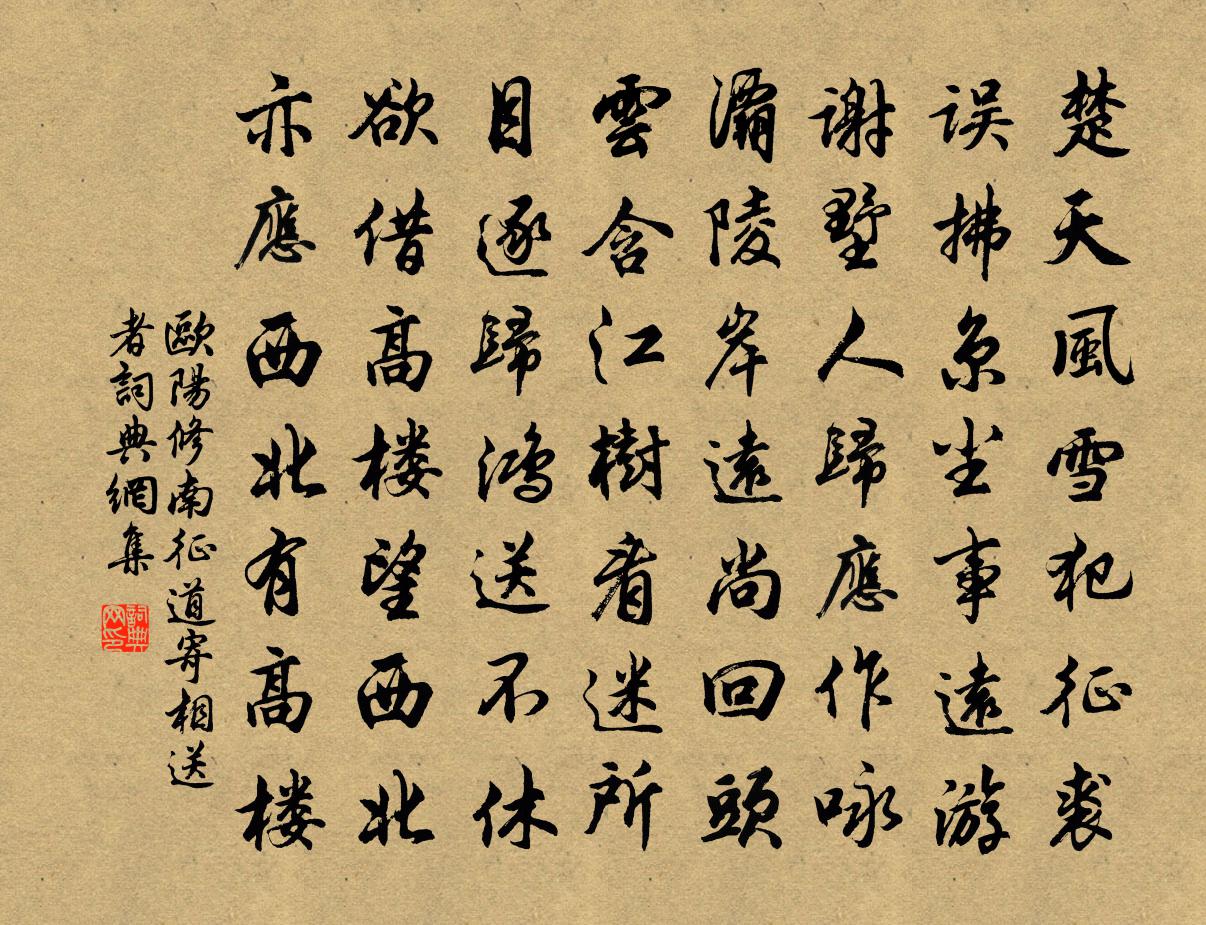 楚天風雪犯征裘
误拂京尘事遠游
谢墅人歸應作咏
灞陵岸遠尚回頭
雲含江樹看迷所
目逐歸鴻送不休
欲借高楼望西北
亦應西北有高楼
歐陽修南征道寄相送
者詞典網集
詞典网印